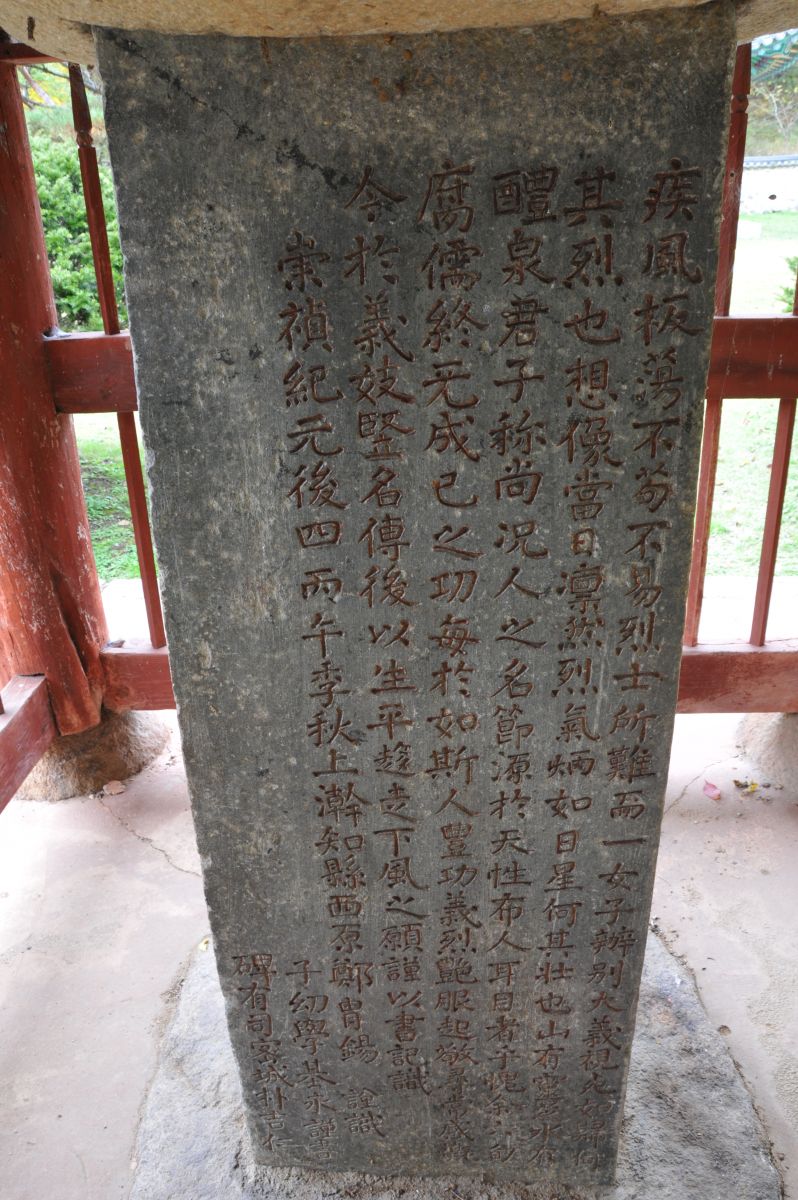 疾風板蕩不苟不易烈士所難而一女子辦別大義視死如歸何
其烈也想像當日凛然烈氣炳如日星何其壯也山有靈芝水有
醴泉君子称尚况人之名節源於天性布人耳目者乎愧余
腐儒終无成已之功每於如斯人豊功義烈艶服起敬尋常感
今於義妓竪名傳後以生平趍走下風之願謹以書記識
崇禎紀元後四丙午季秋上澣知縣西原鄭冑錫詮識
子幼學基永謹書
碑有司容城朴吉仁